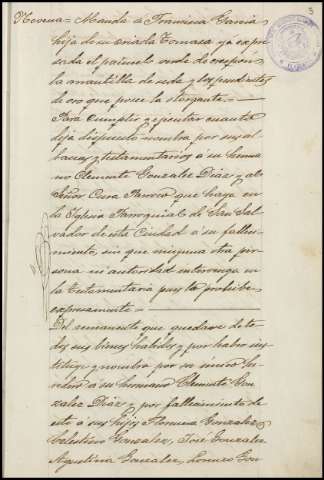 3
Novena = Manda á Francisca García
hija de su criada Tomasa ya expre
sada el pañuelo verde de crespon
la mantilla de seda y los pendientes
de oro que posee la otorgante. =
Para cumplir y ejecutar cuanto
deja dispuesto nombra por sus al
baceas y testamentarios á su herma
no Clemente Gonzalez Diaz y al
Señor Cura Párroco que haya en
la Iglesia Parroquial de San Sal
vador de esta Ciudad á su falleci
miento, sin que ninguna otra per
sona ni autoridad intervenga en
la testamentaria pues lo prohibe
expresamente =
Del remanente que quedare de to
dos sus bienes habidos y por haber ins
tituye y nombra por su único he
redero á su hermano Clemente Gon
zalez Diaz y por fallecimiento de
este á sus hijos Florencia Gonzalez
Celestino Gonzalez, José Gonzalez
Agustina Gonzalez, Lorenzo Gon